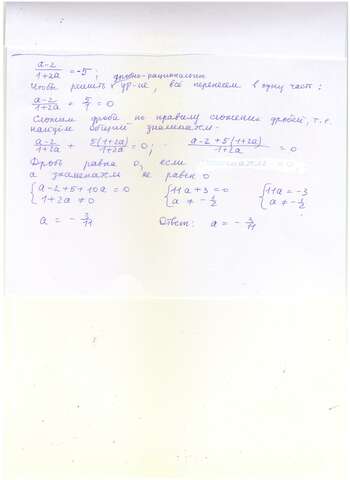 a-2/1+2a = -5; дробно-рациональн
Чтобы решить ур-ие, всё перенесем в одну часть:
a-2/1+2a + 5/1 = 0
Сложим дроби по правилу сложения дробей, т.е.
найдём общий знаменатель.
a-2/1+2a + 5(1+2a)/1+2a = 0; a-2+5(1+2a)/1+2a = 0
Дробь равна 0, если
а знаменатель не равен 0
{a-2+5+10a = 0 {11a+3=0 {11a=-3
{1+2a ≠ 0 {a ≠ -1/2 {a ≠ -1/2
a = -3/11 Ответ: a = -3/11